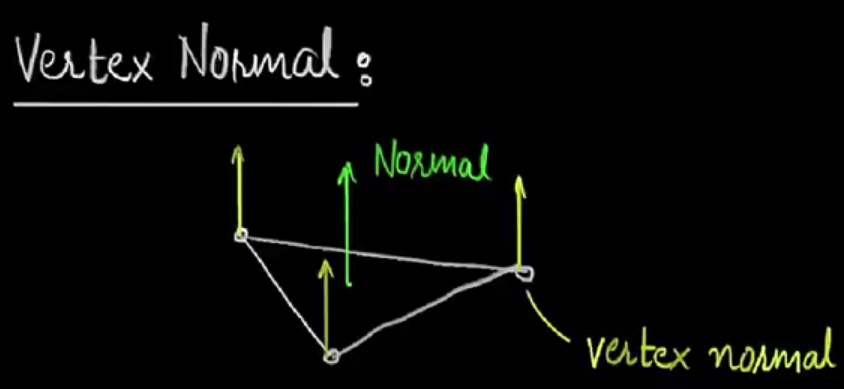 Vertex Normal:
Normal
vertex normal